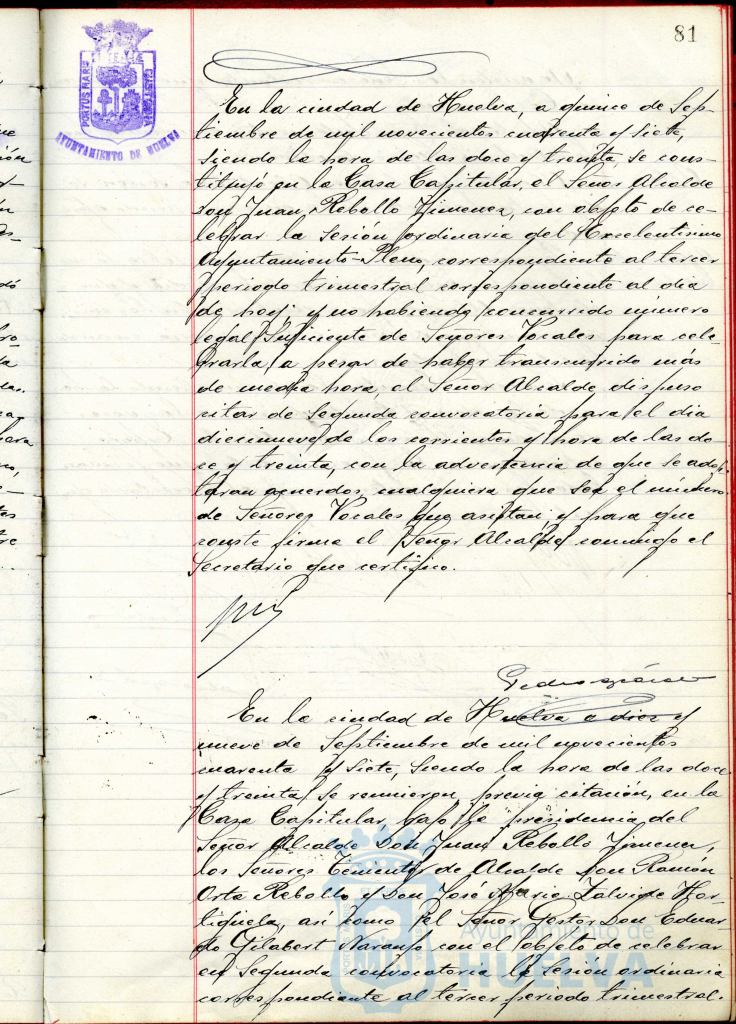 81
PORTUS MARIS
AYUNTAMIENTO DE HUELVA
En la ciudad de Huelva, a quince de Sep-
tiembre de mil novecientos cuarenta y siete,
siendo la hora de las doce y treinta, se cons-
tituyó en la Casa Capitular, el Señor Alcalde
Don Juan Rebollo Jimenez, con objeto de ce-
lebrar la sesión ordinaria del Excelentísimo
Ayuntamiento-Pleno, correspondiente al tercer
periodo trimestral correspondiente al dia
de hoy; y no habiendo concurrido número
legal suficiente de Señores Vocales para cele-
brarla, a pesar de haber transcurrido más
de media hora, el Señor Alcalde, dispuso
citar de segunda convocatoria para el dia
diecinueve de los corrientes y hora de las do-
ce y treinta, con la advertencia de que se adop-
taran acuerdos, cualquiera que sea el número
de Señores Vocales que asistan; y para que
conste firma el Señor Alcalde, conmigo el
Secretario que certifico.
En la ciudad de Huelva a diez y
nueve de Septiembre de mil novecientos
cuarenta y siete, siendo la hora de las doce
y treinta, se reunieron, previa citación, en la
Casa Capitular, bajo la presidencia del
Señor Alcalde Don Juan Rebollo Jimenez,
los Señores Tenientes de Alcalde Don Ramón
Orta Rebollo y Don José Maria Zalvide Hor-
tigüela, así como el Señor Gestor Don Eduar-
do Gilabert Naranjo con el objeto de celebrar
en segunda convocatoria la sesión ordinaria
correspondiente al tercer periodo trimestral.
Ayuntamiento de
HUELVA